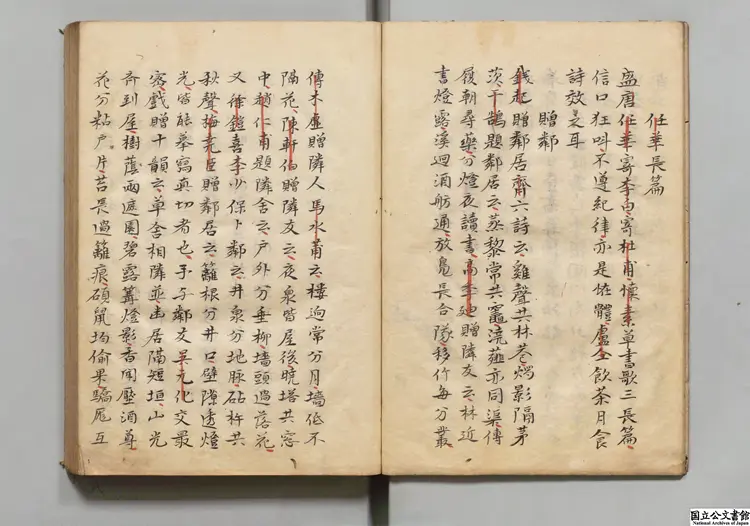 任華長篇
盛唐任華寄李白寄杜甫懷素草書歌三長篇
信口狂叫不遵紀律亦是怪體盧仝飲茶月食
詩效是耳
贈鄰
錢起贈鄰居齊六詩云雞聲共林巷燭影隔茅
茨于鵠題鄰居云蒸黎常共竈澆薤亦同渠傳
履朝尋藥分燈夜讀書高季迪贈隣友云林近
書燈露溪迴酒舫通放鳧長合隊移竹每分叢
傅木虛贈隣人馬水莆云樓逈常分月墻低不
隔花陳軒伯贈隣友云夜泉皆屋後晓塔共窓
中頼仁甫題隣舍云戶外分垂柳墻頭過落花
又徐鎧喜李少保卜鄰云井泉分地脉砧杵共
秋聲梅堯臣贈鄰居云籬根分井口壁隙透燈
光皆能摹寫真切者也予与鄰友單允化交最
密戲贈十韻云草舍相隣並幽居隔短垣山光
齊到屋樹蔭兩遮園碧露篝燈影香聞壓酒尊
花分粘戶片苔長過籬痕碩鼠均偷果驕尨互
国立公文書館
National Archives of Japan